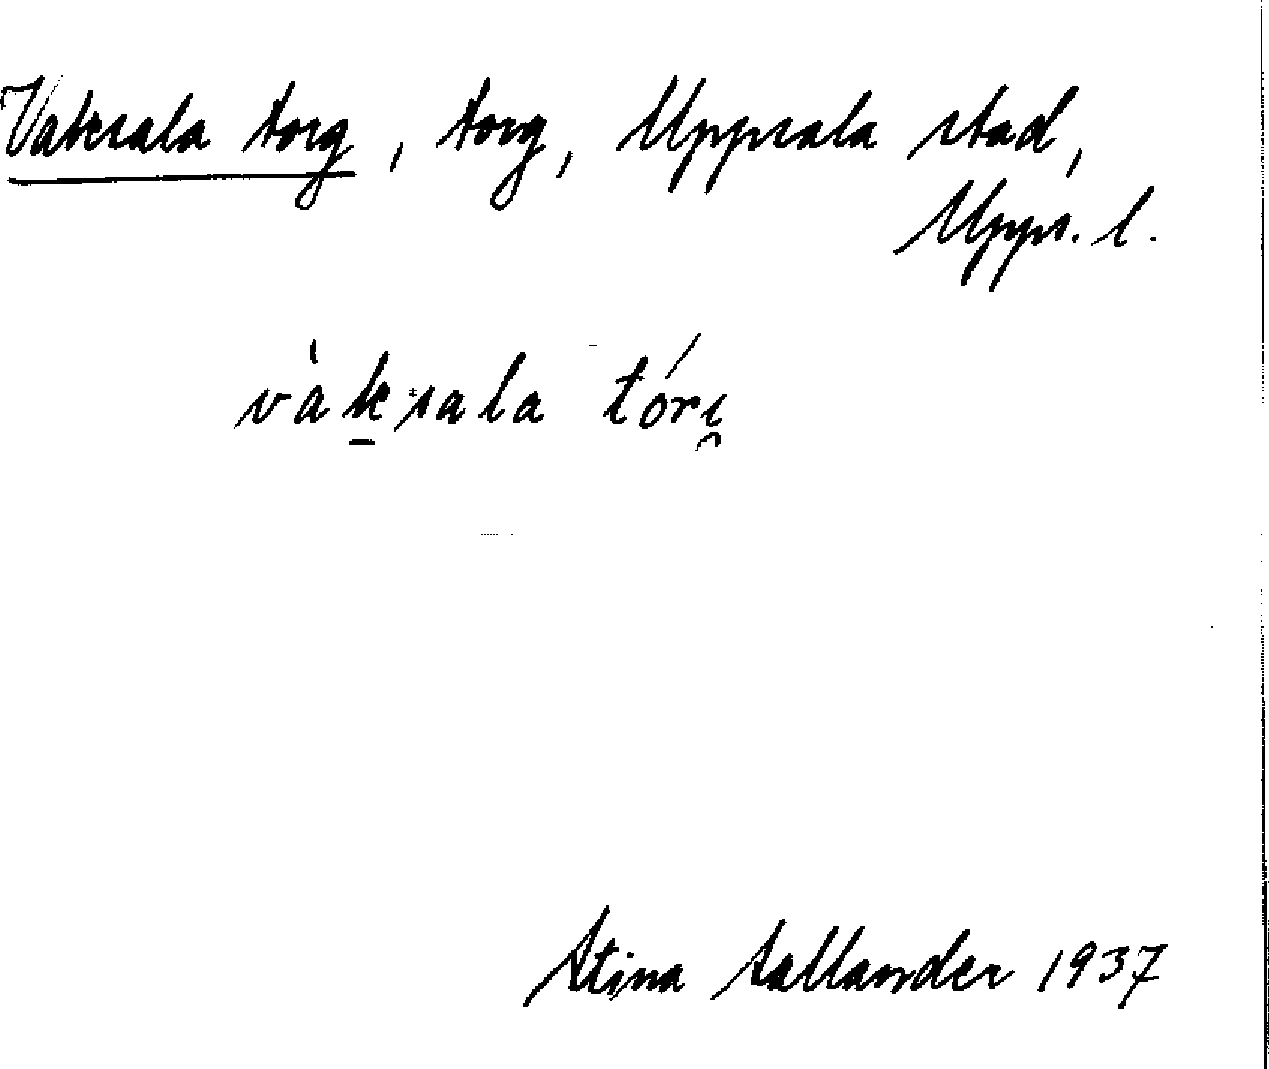 Vaksala torg, torg, Uppsala stad,
Upps. l.
vàksala tóri̯
Stina Sallander 1937